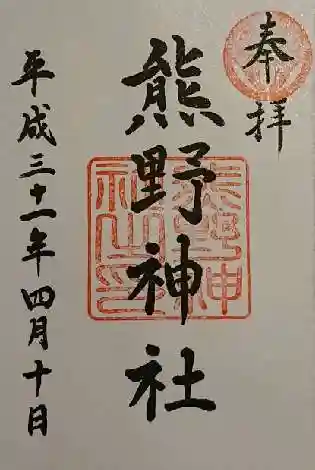 奉拝
熊野神社
平成三十一年四月十日